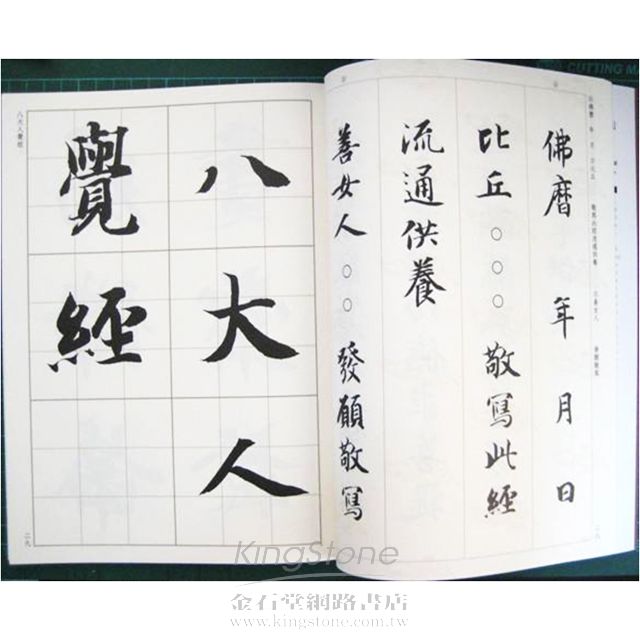 佛曆 年 月 日
比丘○○○敬寫此經
流通供養
善女人○○發願敬寫
八大人
覺經
八大人覺經
二九
KingStone
金石堂網路書店
www.kingstone.com.tw